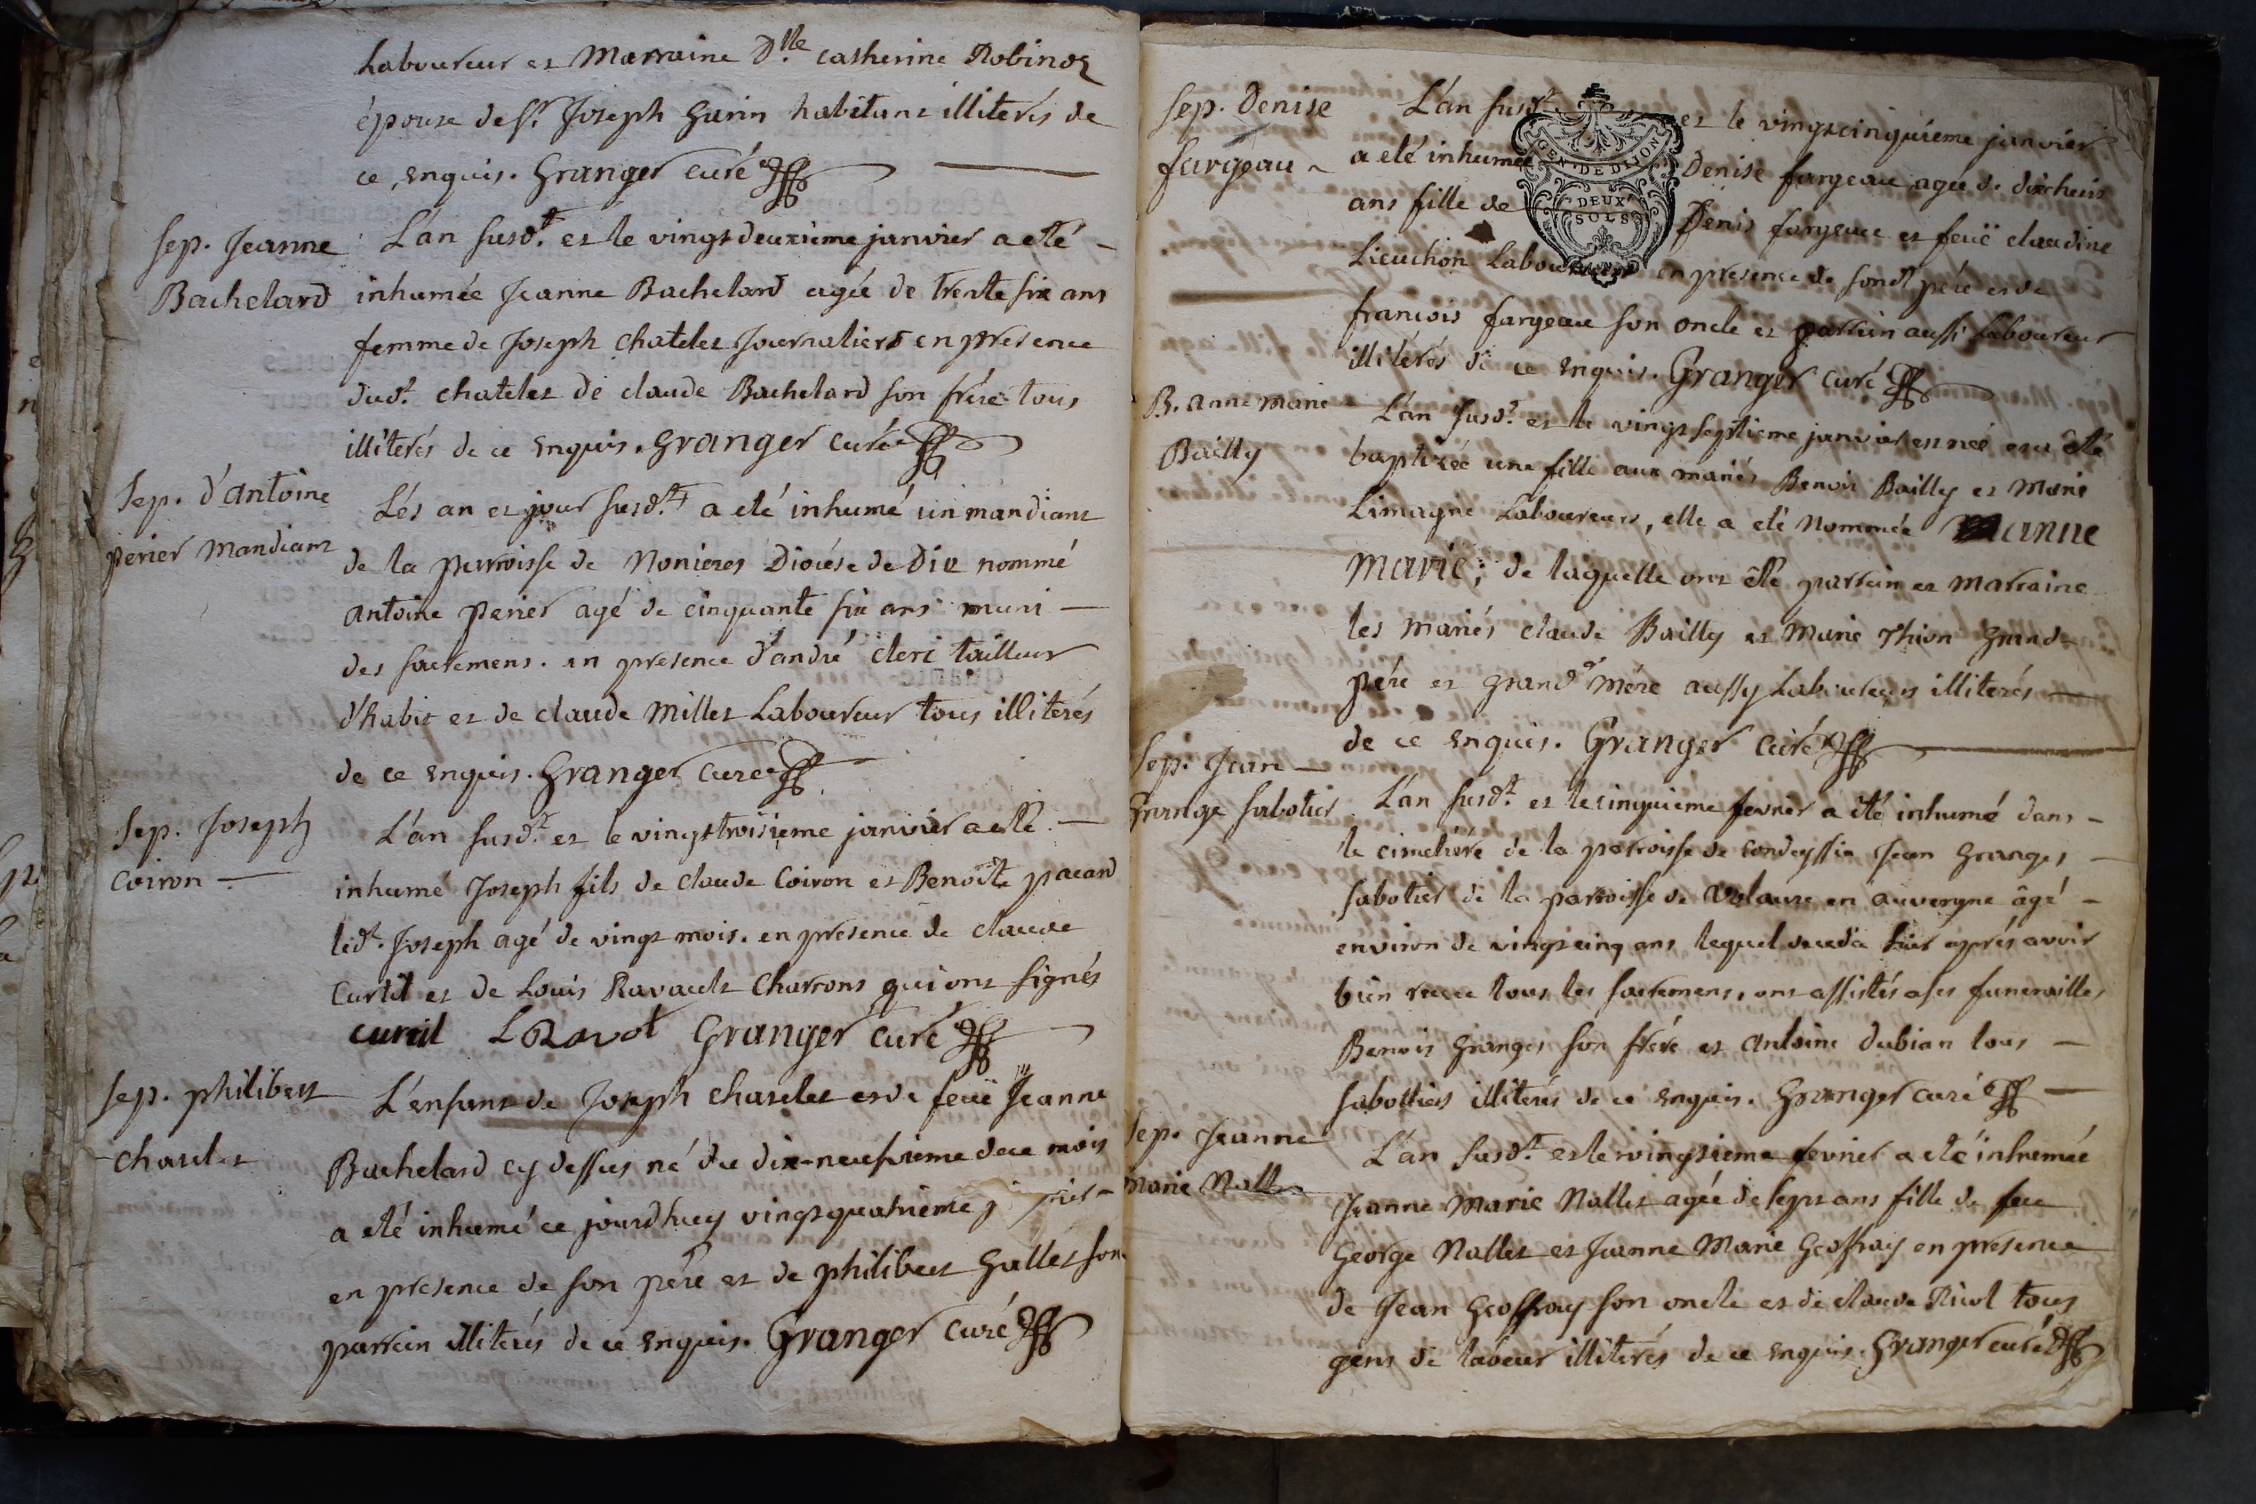 Laboureur et Marraine D.lle catherine Robinot
épouse de Sr. Joseph Gurin habitant illiterés de
ce, enquis. Granger curé
Sep. Jeanne
Bachelard
L'an susdt. et le vingtdeuxième janvier a eté
inhumée Jeanne Bachelard agée de trente six ans
femme de Joseph chatelet Journaliers en presence
dudt. chatelet de claude Bachelard son frére tous
illiterés de ce enquis. Granger curé
Sep. d'antoine
perier mandiant
Lés an et jour susdt. a eté inhumé un mandiant
de la parroisse de Nonieres Diocése de Die nommé
antoine perier agé de cinquante six ans muni
des sacremens. en presence d'andré cleri tailleur
d'habit et de claude Millet Laboureur tous illiterés
de ce enquis. Granger curé
Sep. Joseph
Coiron
L'an susdt. et le vingttroisieme janvier a eté
inhumé Joseph fils de claude Coiron et Benoite pacand
ledt. Joseph agé de vingt mois. en presence de claude
Curtil et de Louis Ravault Charrons qui ont signés
curtil L Ravot Granger curé
Sep. philibert
chatelet
L'enfant de Joseph chatelet et de feue Jeanne
Bachelard cy dessus né du dix-neufvieme de ce mois
a eté inhumé ce jourdhuy vingtquatrieme
en presence de son pére et de philibert Gallet son
parrein illiterés de ce enquis. Granger curé
Sep. Denise
fargeau
L'an susdt. et le vingtcinquieme janvier
a eté inhumée Denise fargeau agée de dixhuit
ans fille de Denis fargeau et feuë claudine
Lieuchon Laboureur en presence de sondt pére et de
francois fargeau son oncle et parrein aussi Laboureur
illiterés de ce enquis. Granger curé
GEN. DE DIJON
DEUX
SOLS
B. anne marie
Bailly
L'an susdt. et le vingtseptieme janvier est neé et a été
baptisée une fille aux mariés Benoit Bailly et Marie
Limagne Laboureurs, elle a eté Nommée anne
Marie; de laquelle ont été parrein et marraine
les mariés claude Bailly et Marie Thion Grand
Pére et grand mére aussy Laboureurs illiterés
de ce enquis. Granger curé
Sep. Jean
Grange sabotier
L'an susdt. et le cinquieme fevrier a été inhumé dans
le cimetiére de la parroisse de Condeyssia Jean Granges
sabotier de la parroisse de Volaure en auvergne âgé
environ de vingtcinq ans lequel deceda hier aprés avoir
bien receu tous les sacremens, ont assistés a ses funerailles
Benoit Granges son frére et Antoine Dubian tous
sabottiers illiterés de ce enquis. Granger curé
Sep. Jeanne
Marie Nallet
L'an susdt. et le vingtieme fevrier a eté inhumée
Jeanne Marie Nallet agée de sept ans fille de feu
George Nallet et Jeanne Marie Geoffray en presence
de Jean Geoffray son oncle et de claude Ricol tous
gens de labeur illiterés de ce enquis. Granger curé